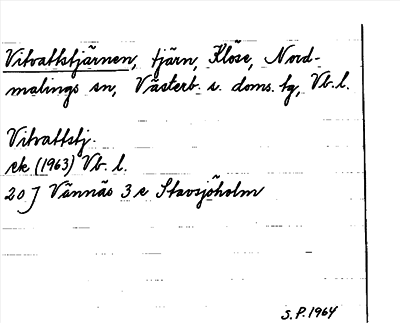 Vitvattstjärnen, tjärn, Klöse, Nord-
malings sn, Västerb. s. doms. tg, Vb. l.
Vitvattstj.
ek (1963) Vb. l.
20 J Vännäs 3 e Stavsjöholm
S.P. 1964